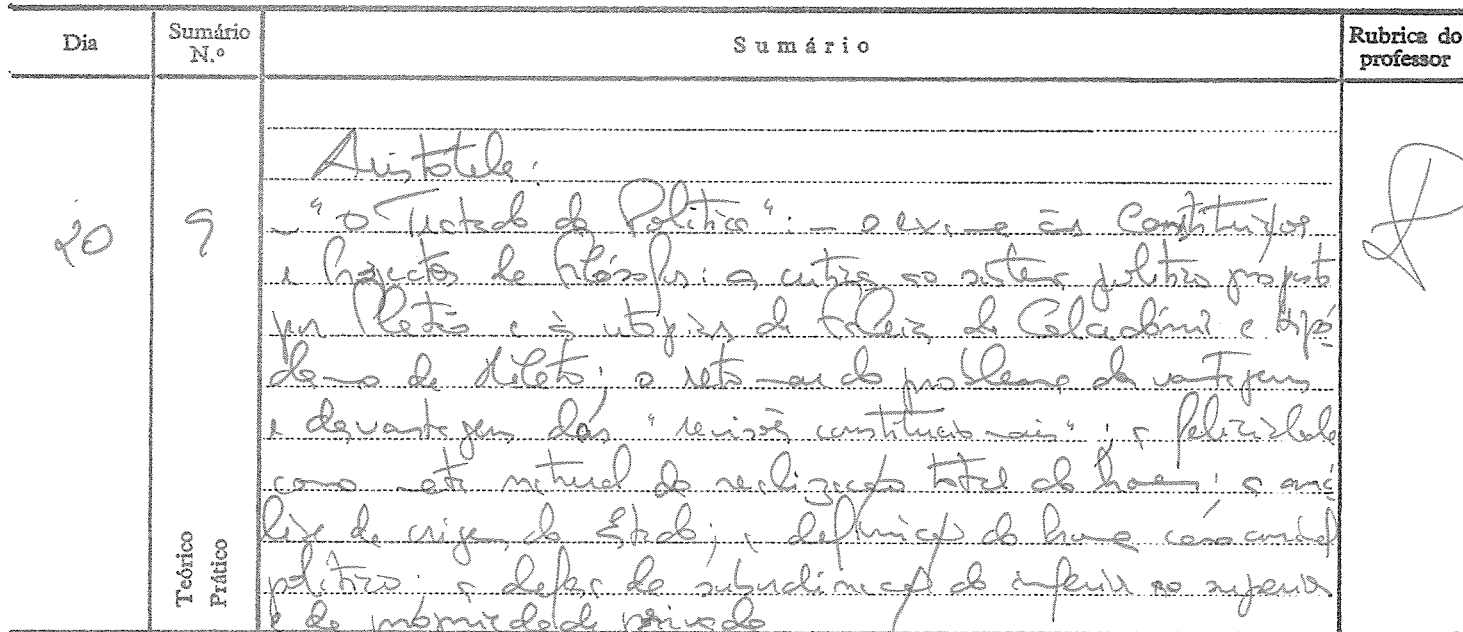 Dia
Sumário N.º
Sumário
Rubrica do professor
20
9
Teórico
Prático
Aristóteles:
- "O Tratado da Política": - o exame às Constituições
e Projectos de filósofos: a crítica ao sistema político proposto
por Platão e à utopias de Faleia de Calcedónia e Hipó
damo de Mileto; o retomar do problema da vantagens
e desvantagens das "revisões constitucionais"; a felicidade
como meta natural da realização total do homem; a aná
lise da origem do Estado; a definição do homem como animal
político; a defesa da subordinação do inferior ao superior
e da propriedade privada